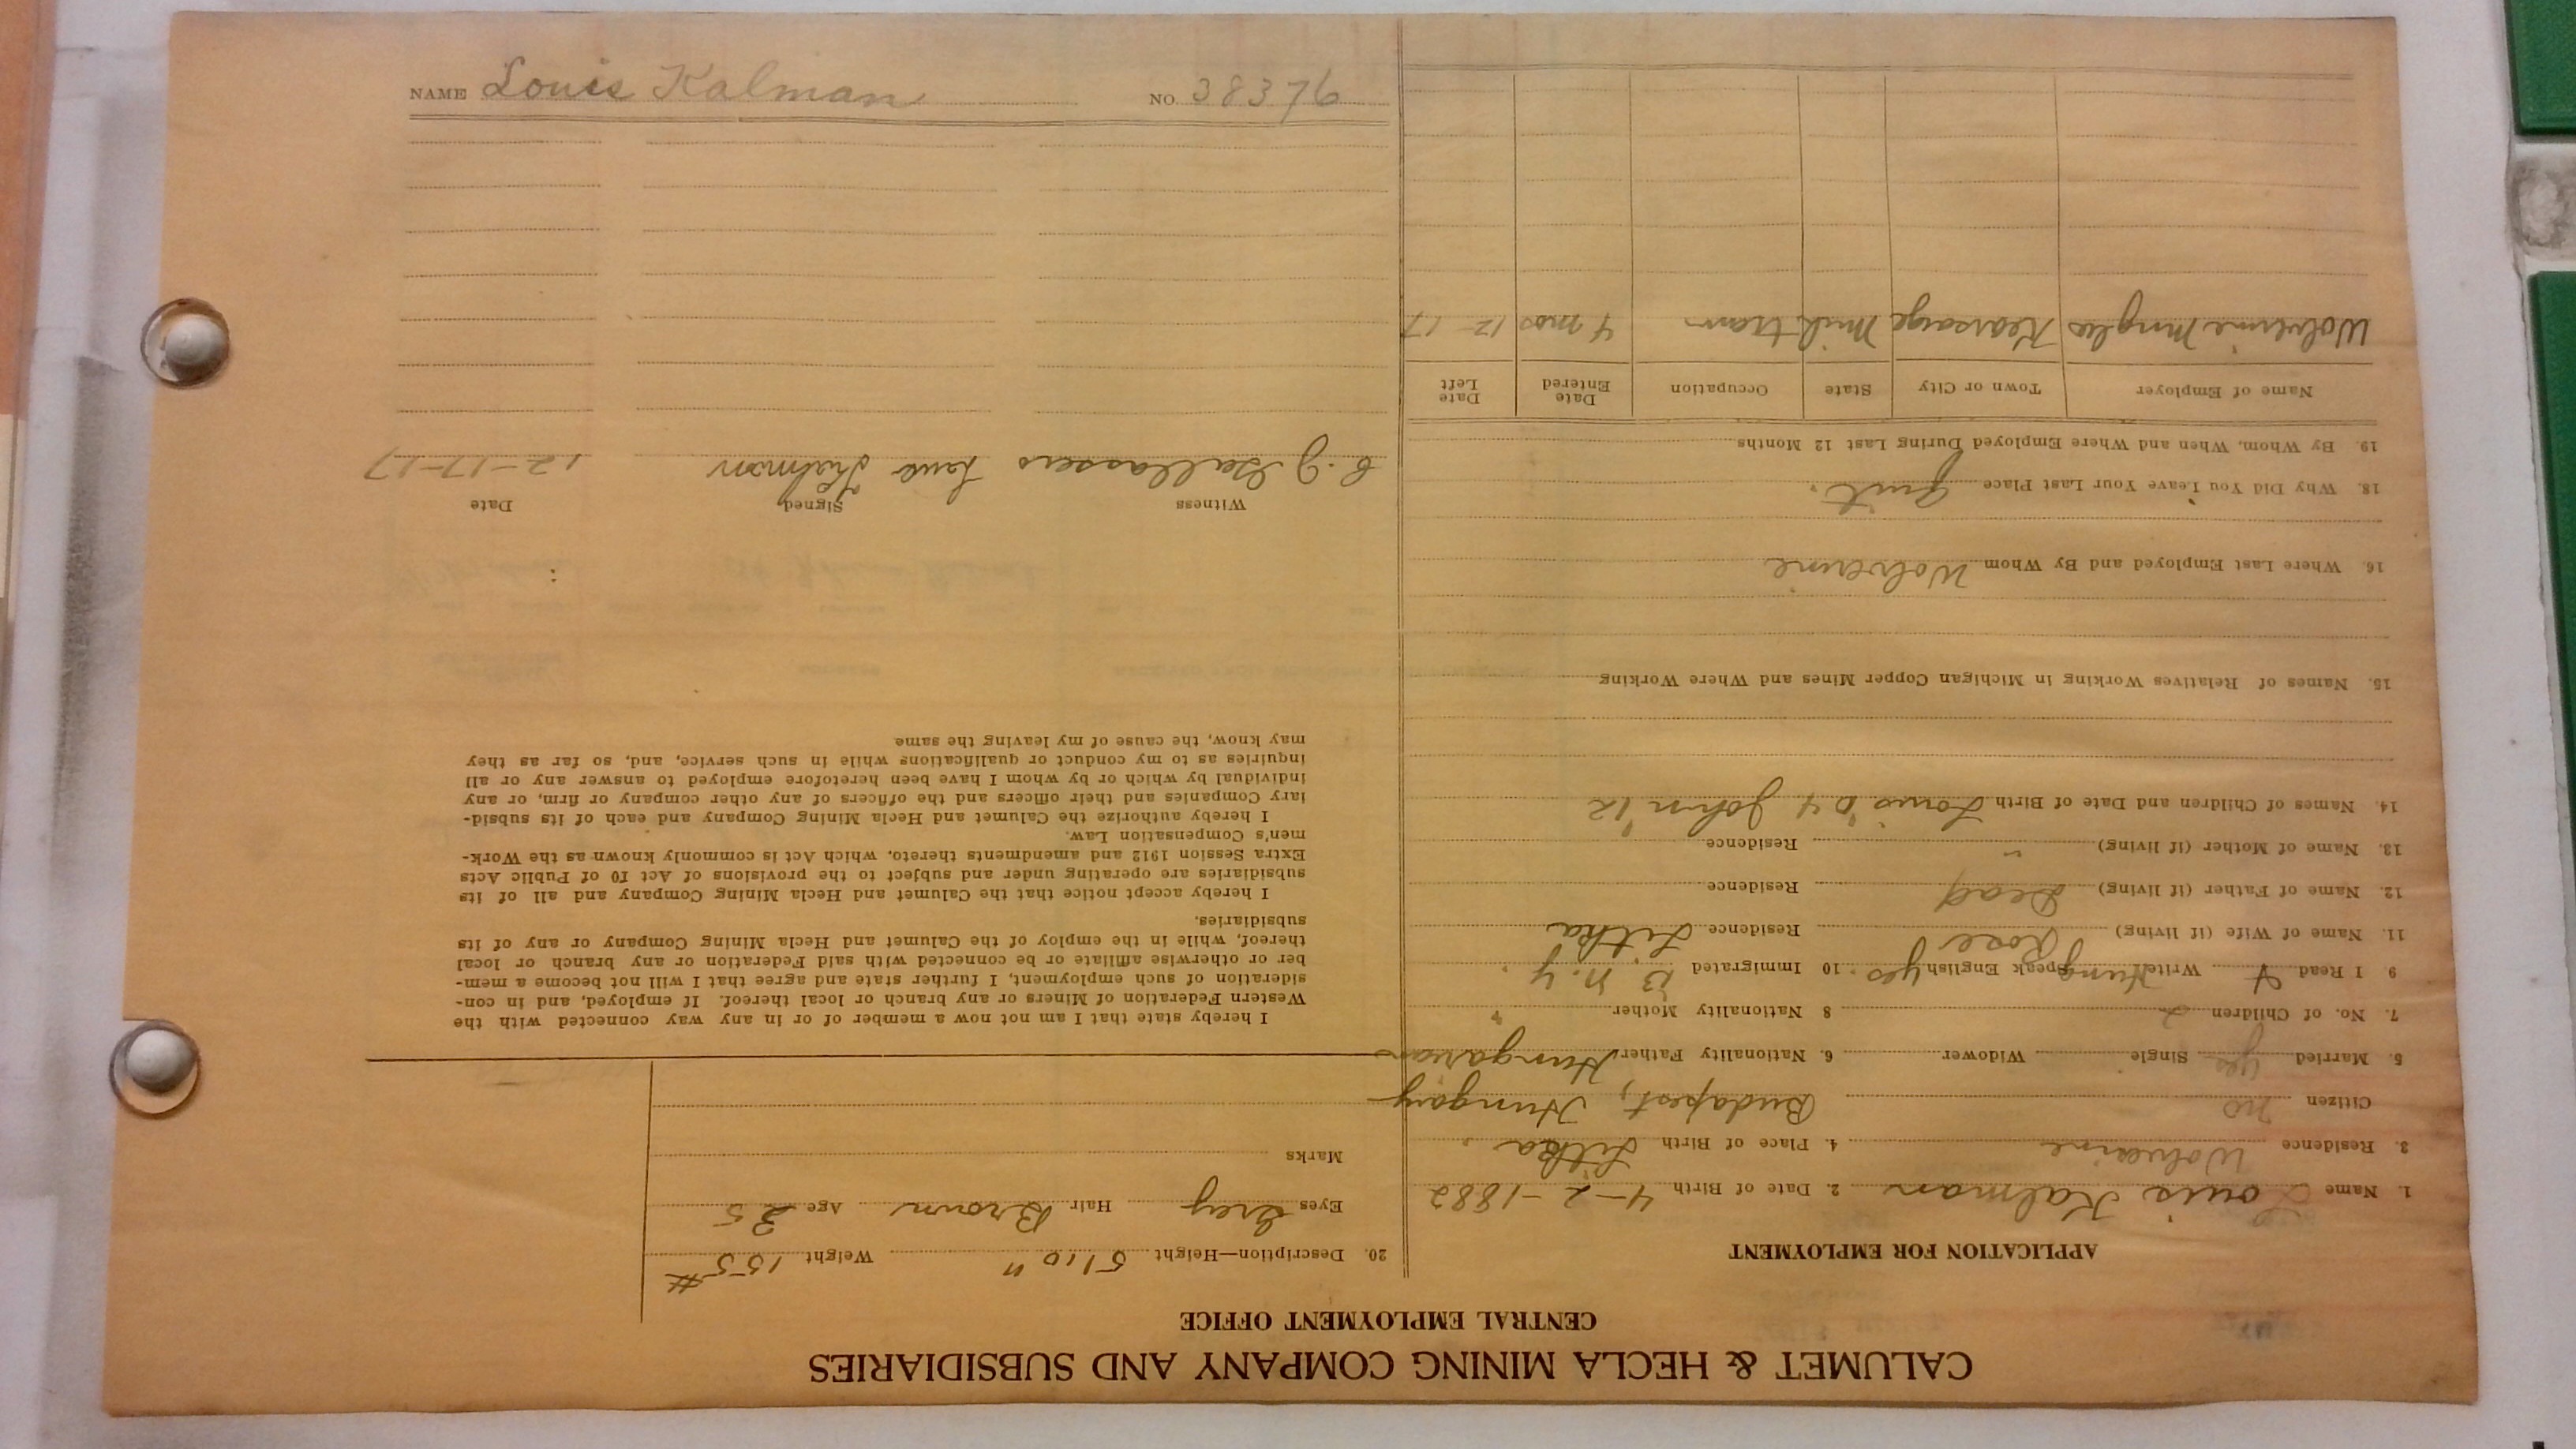 CALUMET & HECLA MINING COMPANY AND SUBSIDIARIES
CENTRAL EMPLOYMENT OFFICE
APPLICATION FOR EMPLOYMENT
1. Name Louis Kalman 2. Date of Birth 4-2-1882
3. Residence Wolverine 4. Place of Birth Litka
Citizen no Budapest, Hungary
5. Married yes Single Widower 6. Nationality Father Hungarian
7. No. of Children 2 8 Nationality Mother "
9 I Read & Write Hung Speak English yes. 10 Immigrated B N.Y.
11. Name of Wife (if living) Rose Residence Litka
12. Name of Father (if living) Dead Residence
13. Name of Mother (if living) " Residence
14. Names of Children and Date of Birth Louis '04 John '12
15. Names of Relatives Working in Michigan Copper Mines and Where Working
16. Where Last Employed and By Whom Wolverine
18. Why Did You Leave Your Last Place Quit.
19. By Whom, When and Where Employed During Last 12 Months
Name of Employer Town or City State Occupation Date Entered Date Left
Wolverine Kearsarge Mich tram 4 mos 12-17
20. Description—Height 5'10" Weight 155#
Eyes Grey Hair Brown Age 35
Marks
I hereby state that I am not now a member of or in any way connected with the
Western Federation of Miners or any branch or local thereof. If employed, and in con-
sideration of such employment, I further state and agree that I will not become a mem-
ber or otherwise affiliate or be connected with said Federation or any branch or local
thereof, while in the employ of the Calumet and Hecla Mining Company or any of its
subsidiaries.
I hereby accept notice that the Calumet and Hecla Mining Company and all of its
subsidiaries are operating under and subject to the provisions of Act 10 of Public Acts
Extra Session 1912 and amendments thereto, which Act is commonly known as the Work-
men's Compensation Law.
I hereby authorize the Calumet and Hecla Mining Company and each of its subsid-
iary Companies and their officers and the officers of any other company or firm, or any
individual by which or by whom I have been heretofore employed to answer any or all
inquiries as to my conduct or qualifications while in such service, and, so far as they
may know, the cause of my leaving the same.
Witness Signed Date
Kalman 12-17-17
NAME Louis Kalman NO. 38376